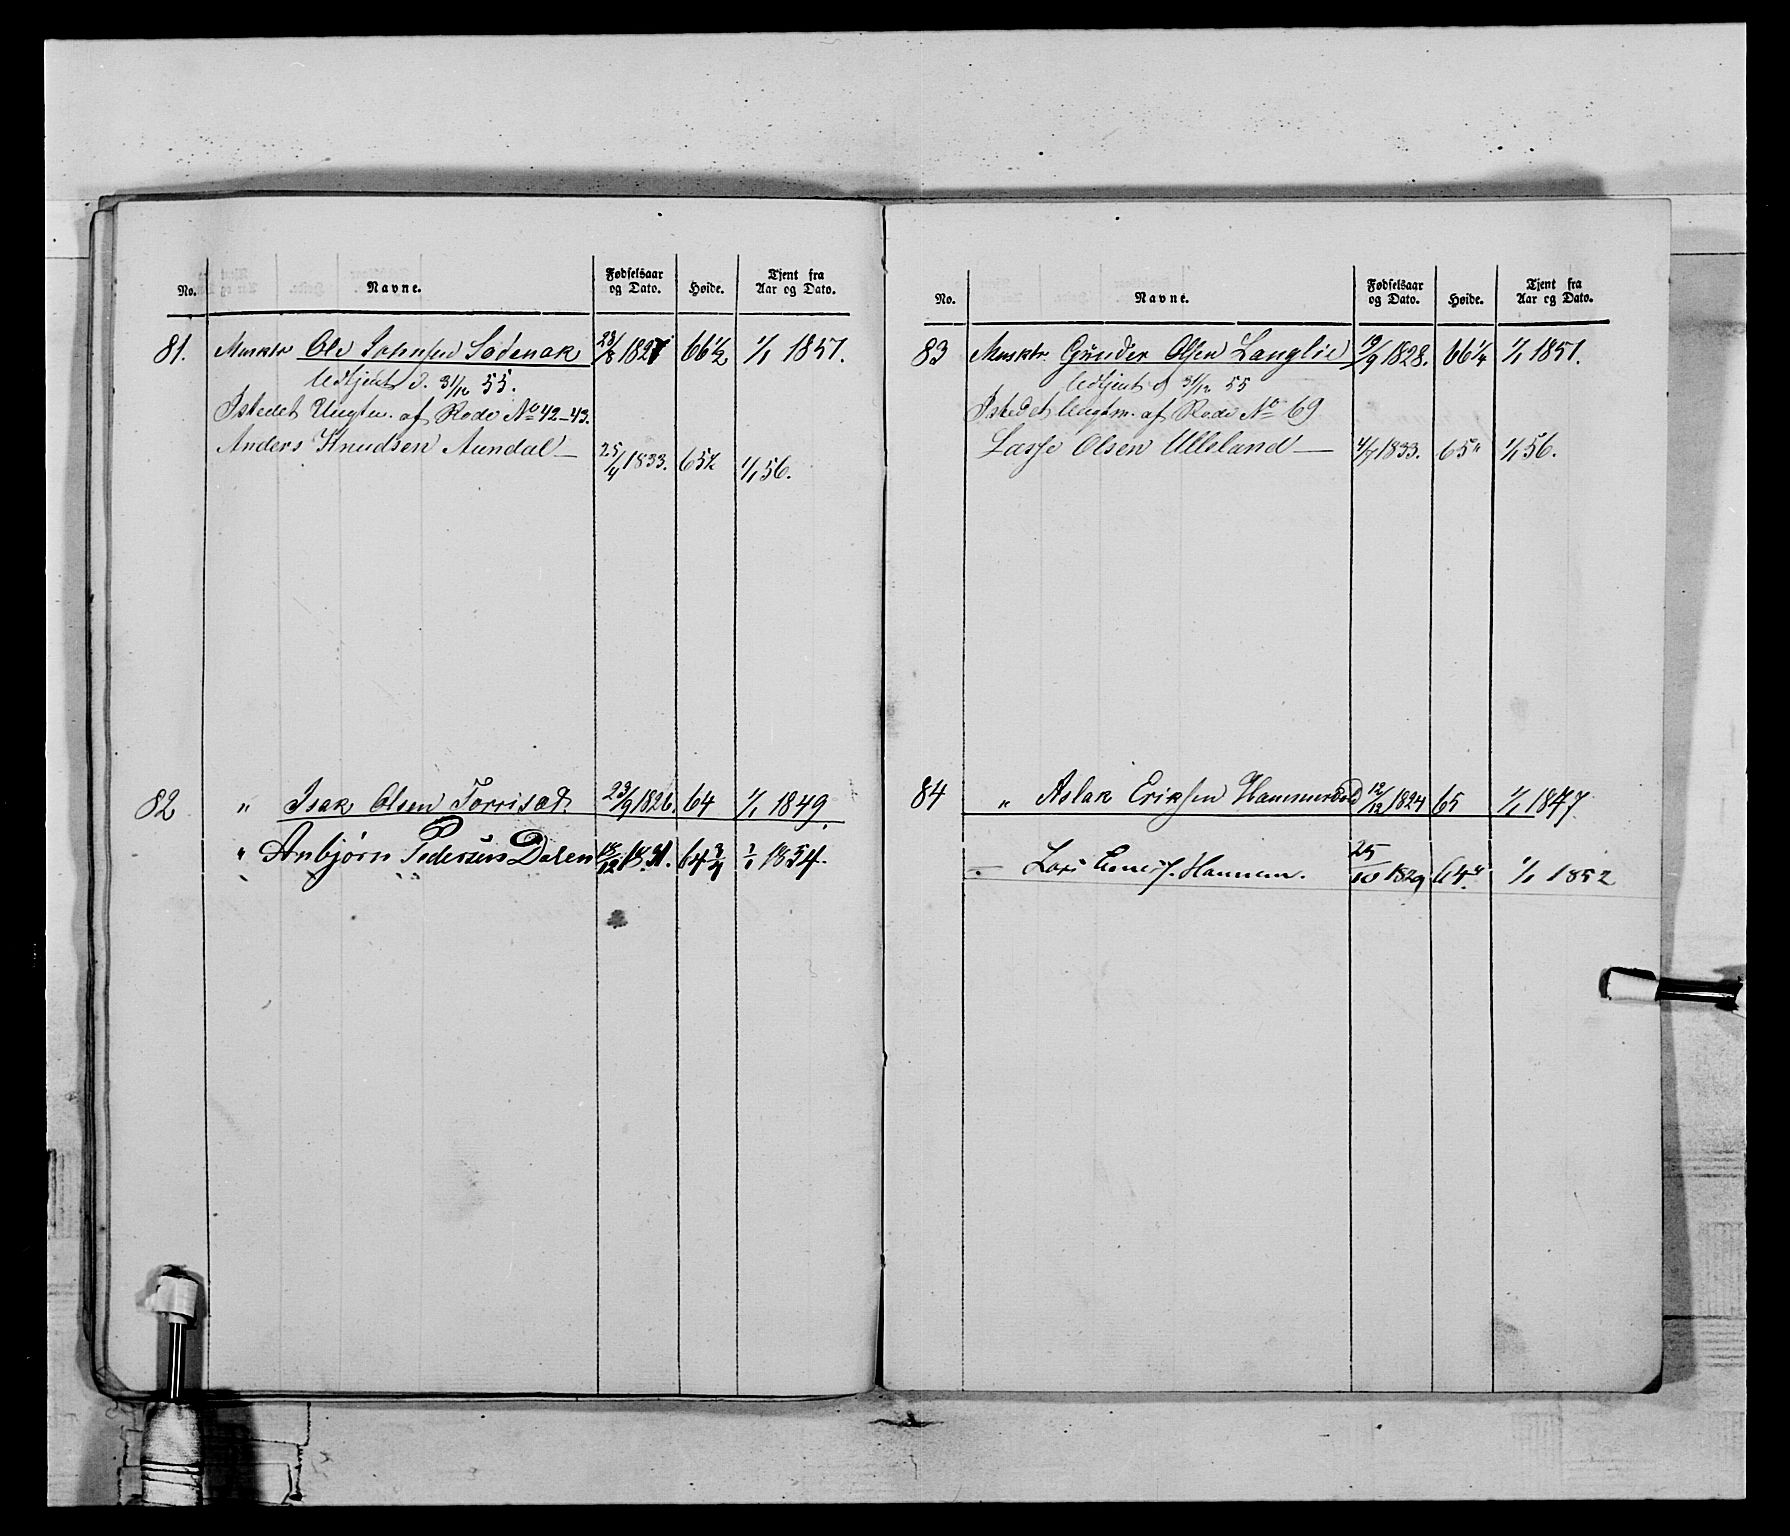 No. Navne. Fødselsaar og Dato. Høide. Tjent fra Aar og Dato.
81. Musktr Ole Johnsen Sødenak 28/8 1827 66 1/2 1/1 1851.
Udtjent d. 31/12 55.
Istedet Ungtm. af Rode No 42-43.
Anders Knudsen Aundal — 25/4 1833. 65 1/2 1/1 56.
82 " Isak Olsen Torrisæt 23/9 1826. 64 1/1 1849.
" Anbjørn Pedersen Dalen 18/12 1831. 64 3/4 1/1 1854.
No. Navne. Fødselsaar og Dato. Høide. Tjent fra Aar og Dato.
83 Musktr. Gunder Olsen Langlie 19/9 1828. 66 1/4 1/1 1851.
Udtjent d 31/12 55
Istedet Ungtm. af Rode No 69
Lasse Olsen Ulleland — 4/7 1833. 65" 1/1 56.
84 " Aslak Eriksen Hammersdal 12/12 1824 65 1/1 1847.
— Hannem. 25/10 1829 64." 1/1 1852